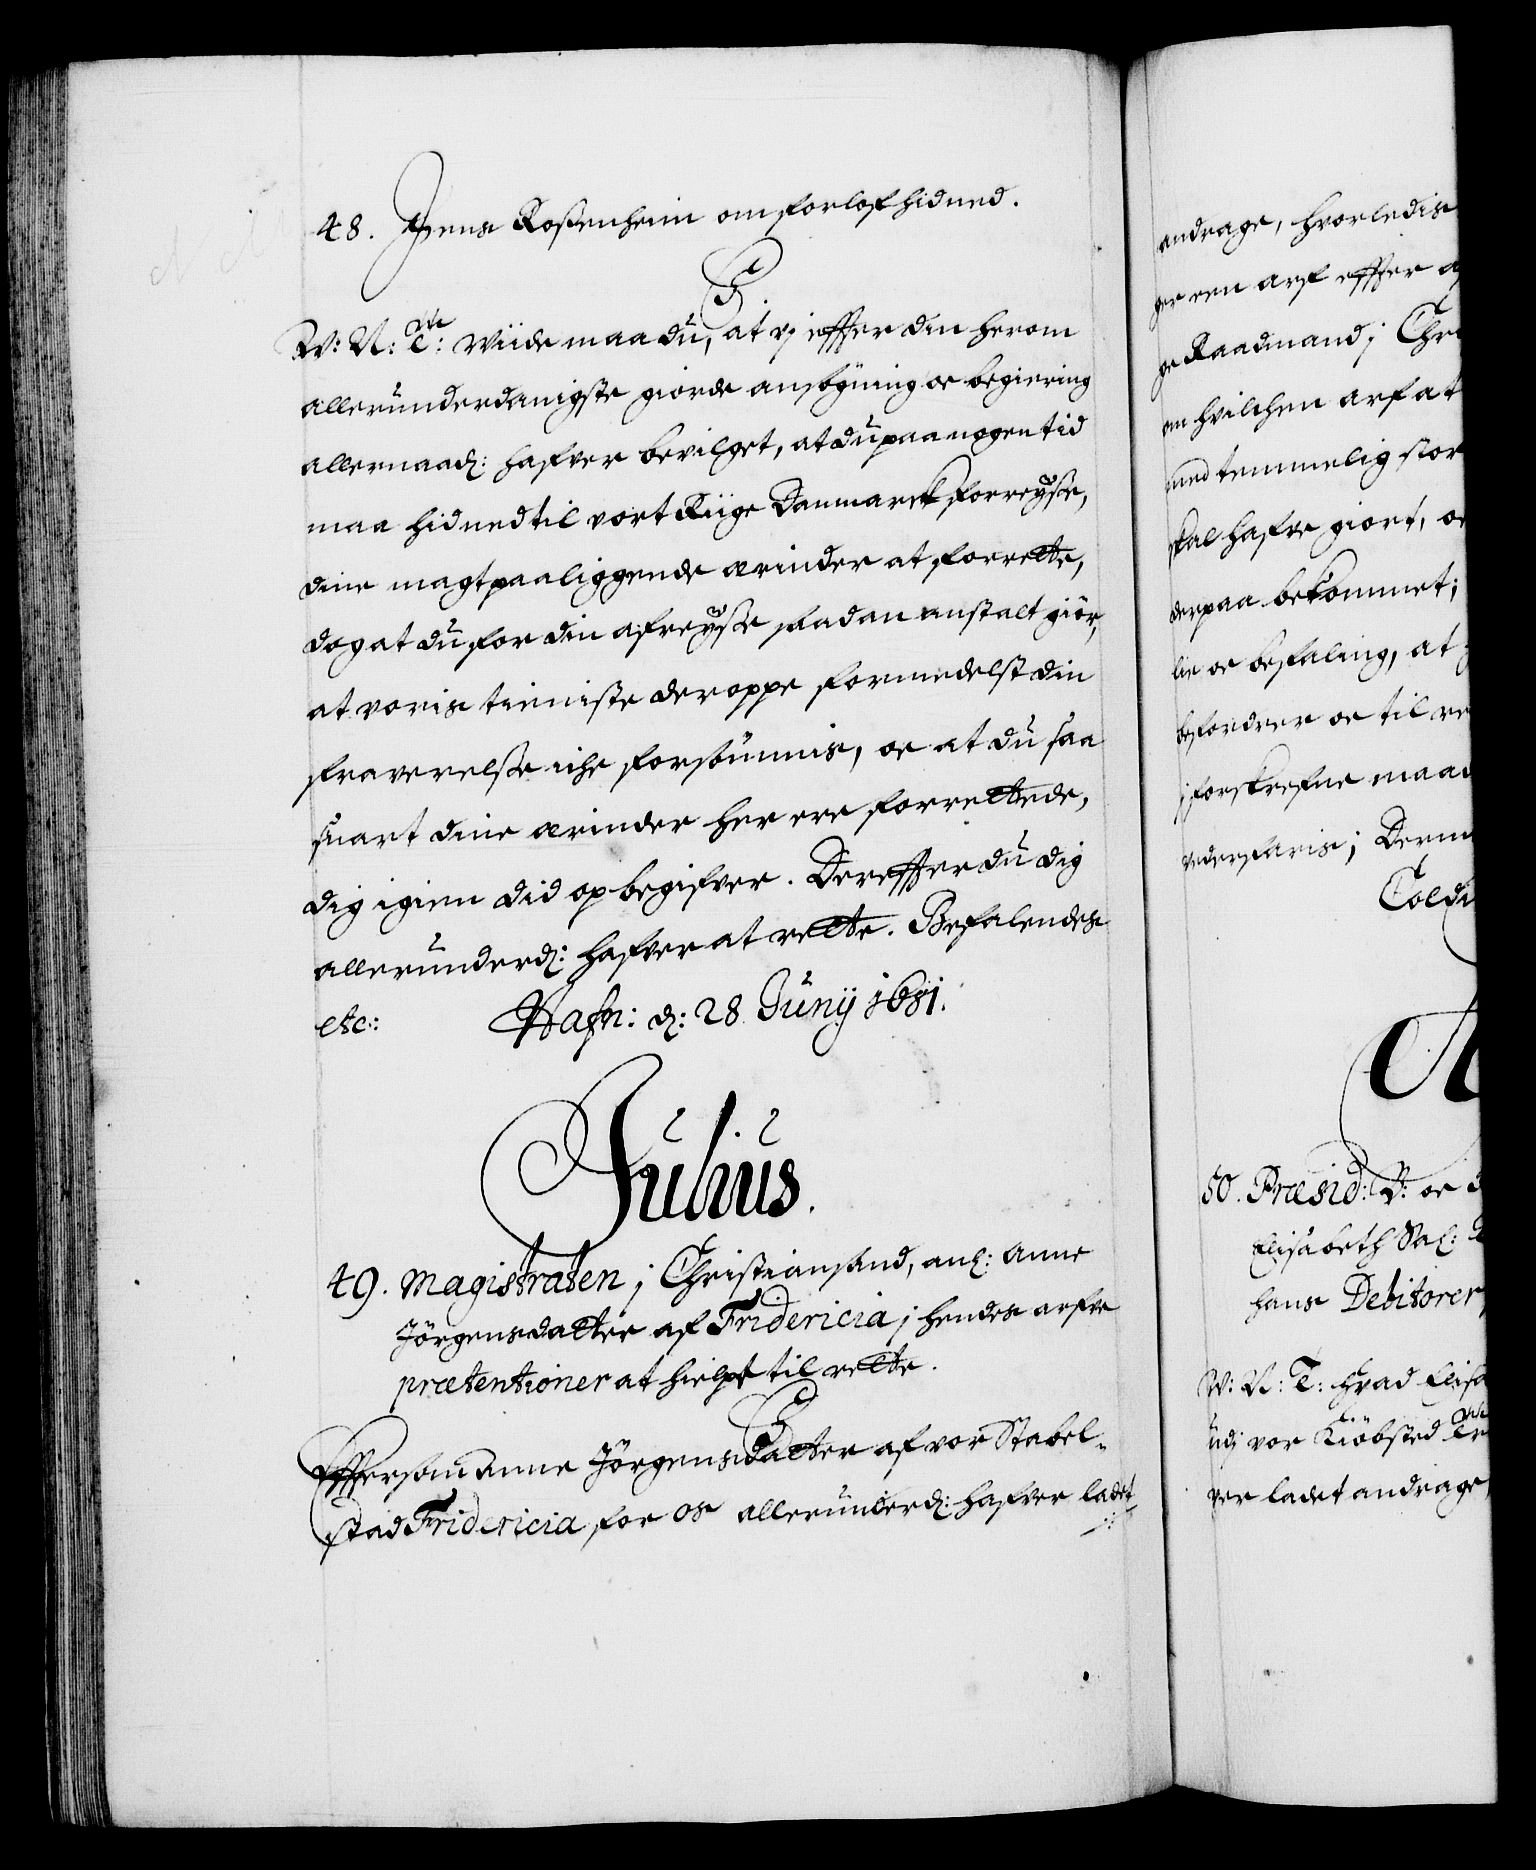 48. Jens Rosenheim om forlof hidned.
C5
W: N: T: Wiide maa du, at vj effter din herom
allerunderdanigste giorde ansögning oc begiering
allernaad: hafver bevilget, at du paa nogen tid
maa hidned til vort Riige Danmarck forreyse,
dine magtpaaliggende ærinder at forrette,
dog at du for din afreyse saadan anstalt giör,
at voris tieniste deroppe formedelst din
fraverelse iche forsömmis, oc at du saa
snart dine ærinder her ere forrettede,
dig igien did op begifver. Dereffter du dig
allerunderd: hafver at rette. Befalendes
etc: Hafn: d: 28 Junij 1681.
Julius.
49. Magistraten j Christiansand, anl: Anne
Jörgensdatter af Fridericia j hendes arfve
prætentioner at hielpe til rette.
Efftersom Anne Jörgensdatter af vor Stabel-
stad Fridericia for os allerunderd: hafver ladet
andrage, hvorledis
ger een arf effter
ge Raadmand j Chri
om hvilchen arf at
med temmelig stor
skal hafve giort, oc
derpaa bekommet;
lie oc befaling, at
befordrer oc til re
j forskrefne maad
vederfaris; Derm
Coldi
A
50. Præsid: B: oc
Elisabeth Sal:
hans Debitorer
W: N: T: Hvad Elisa
udj vor Kiöbsted
ver ladet andrage,